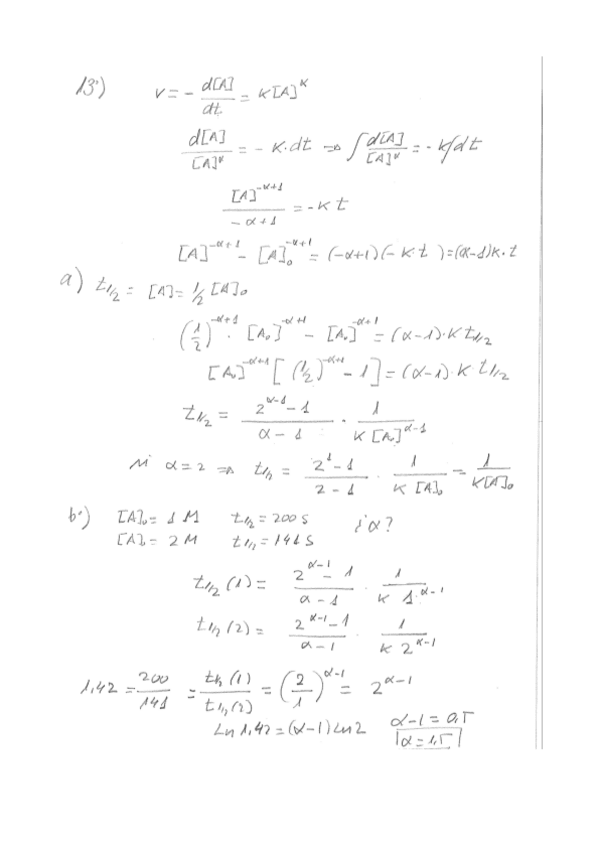 13º) v = - d[A]/dt = K[A]^α
d[A]/[A]^α = - K·dt ⇒ ∫ d[A]/[A]^α = - K∫dt
[A]^(-α+1)/(-α+1) = -K t
[A]^(-α+1) - [A]₀^(-α+1) = (-α+1)(- K·t ) = (α-1)K·t
a) t1/2 = [A] = 1/2 [A]₀
(1/2)^(-α+1) · [A₀]^(-α+1) - [A₀]^(-α+1) = (α-1)·K t1/2
[A₀]^(-α+1) [ (1/2)^(-α+1) - 1 ] = (α-1)·K·t1/2
t1/2 = (2^(α-1) - 1)/(α-1) · 1/(K [A₀]^(α-1))
si α=2 ⇒ t1/2 = (2^1 - 1)/(2-1) · 1/(K [A]₀) = 1/(K[A]₀)
b) [A]₀ = 1 M t1/2 = 200 s ¿α?
[A]₀ = 2 M t1/2 = 141 s
t1/2 (1) = (2^(α-1) - 1)/(α-1) · 1/(K 1^(α-1))
t1/2 (2) = (2^(α-1) - 1)/(α-1) · 1/(K 2^(α-1))
1,42 = 200/141 = t1/2 (1)/t1/2 (2) = (2/1)^(α-1) = 2^(α-1)
Ln 1,42 = (α-1) Ln 2 α-1 = 0,5
α = 1,5